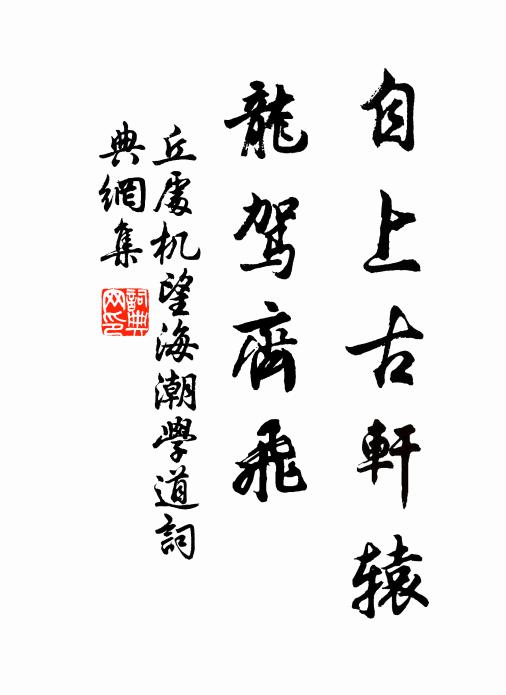 自上古軒辕
龍駕齊飛
丘處机望海潮學道詞
典網集
詞典網印